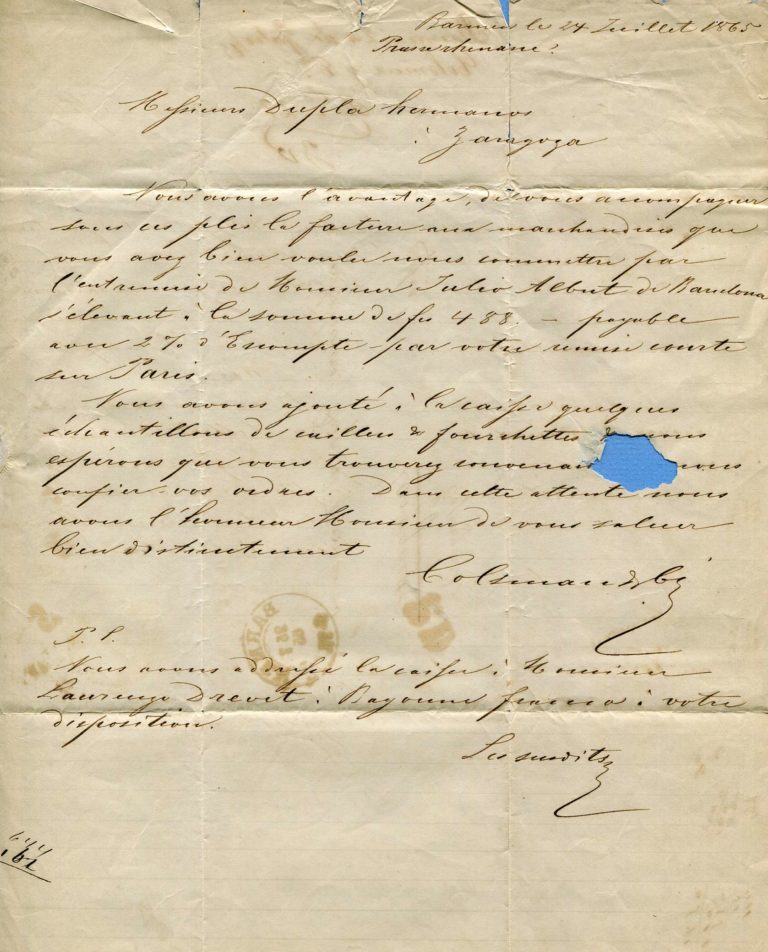 Barmen le 24 Juillet 1865
Prusse rhenane
Messieurs Dupla hermanos
à Zaragoza
Nous avons l'avantage, de vous accompagner
sous ces plis la facture aux marchandises que
vous avez bien voulu nous commettre par
l'entremise de Monsieur Julio Albert de Barcelona
s'élevant à la somme de fcs 488. – payable
avec 2% d'Escompte par votre remise courte
sur Paris.
Nous avons ajouté à la caisse quelques
échantillons de cuillers & fourchettes & nous
espérons que vous trouverez nous
confier vos ordres. Dans cette attente nous
avons l'honneur Monsieur de vous saluer
bien distinctement
Colsman & Cie
P. S.
Nous avons addressé la caisse à Monsieur
Laurenzo Drevet à Bayonne franco à votre
disposition.
Les susdits